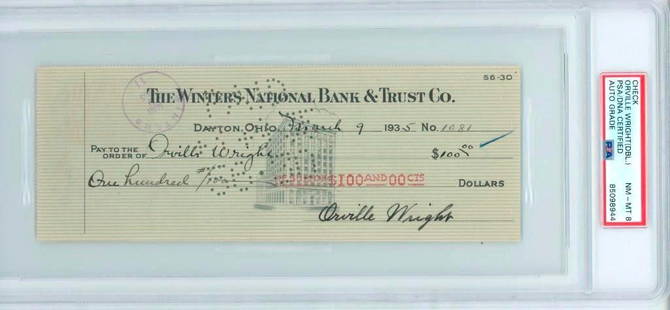 56-30
THE WINTERS NATIONAL BANK & TRUST CO.
DAYTON, OHIO, March 9 1935 No. 1081
PAY TO THE ORDER OF Orville Wright $100 00
One hundred $100 AND 00 CTS DOLLARS
Orville Wright
CHECK NM - MT 8
ORVILLE WRIGHT(DBL.)
PSA/DNA CERTIFIED
AUTO GRADE PSA 85098944